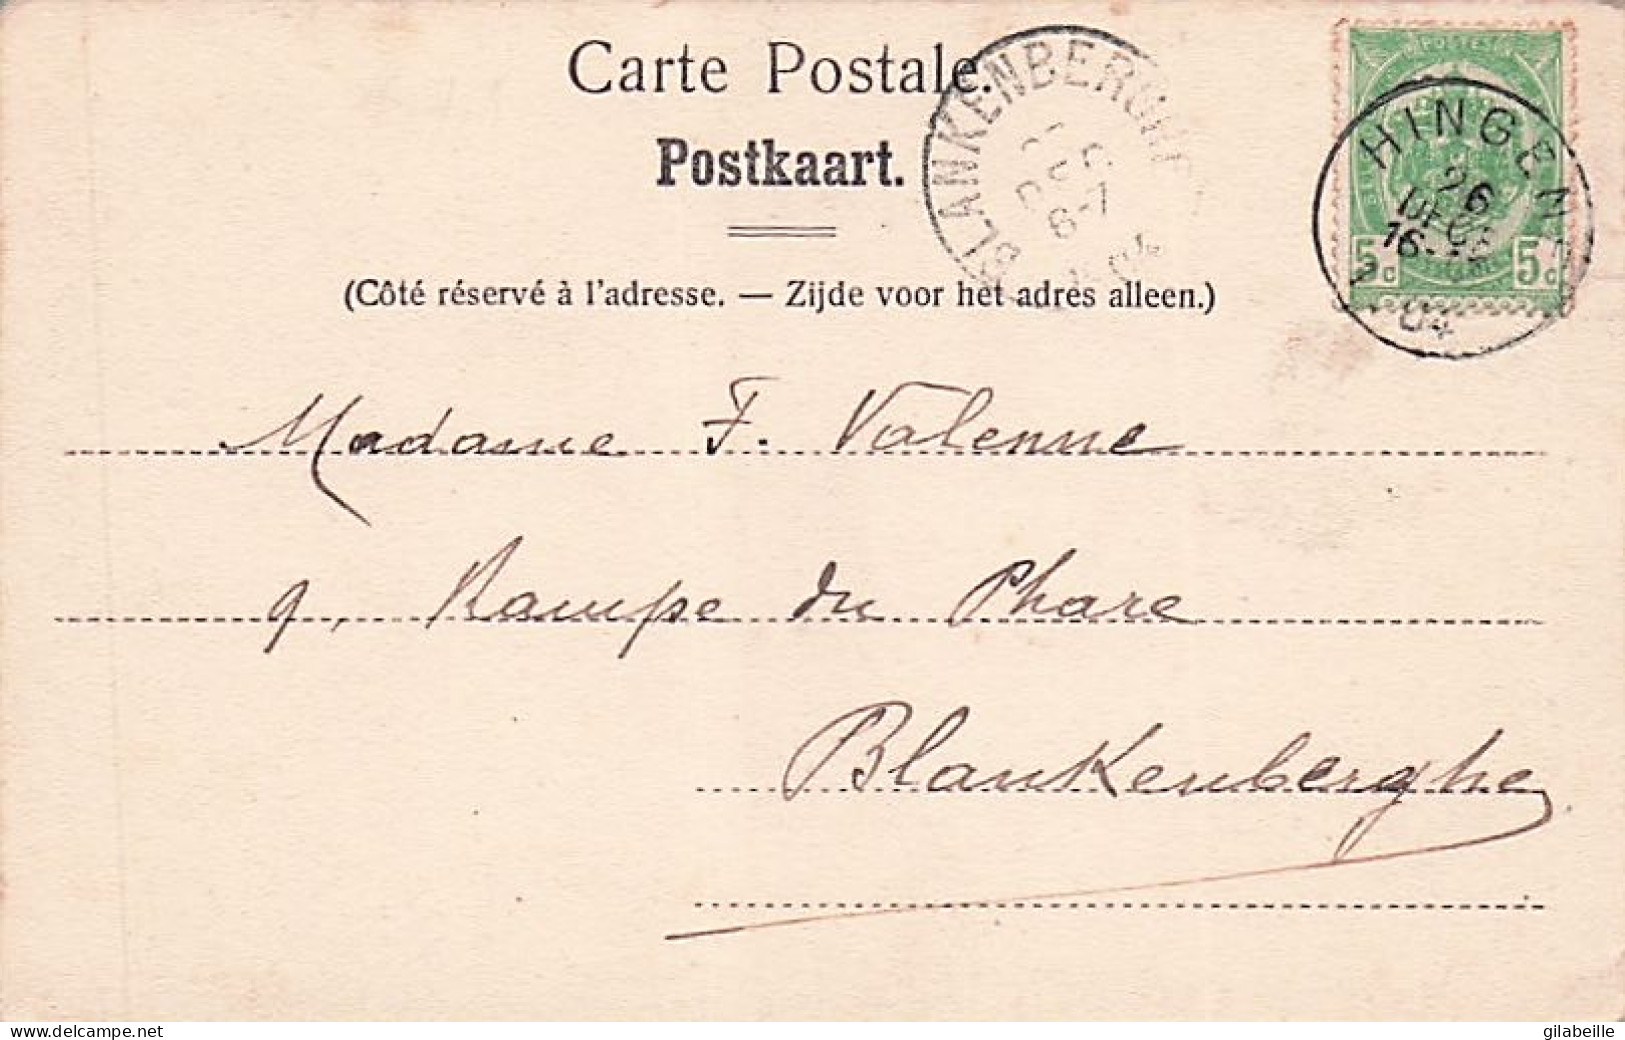 Carte Postale.
Postkaart.
(Côté réservé à l'adresse. — Zijde voor het adres alleen.)
BLANKENBERGHE
DEC
6-7
POSTES
5c 5c
HINGENE
26
DEC
16-
04
Madame F. Valenne
9, Rampe du Phare
Blankenberghe
www.delcampe.net
gilabeille